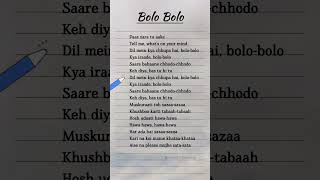 Bolo Bolo
Paas aara tu aake
Tell me, what's on your mind
Dil mein kya chhupa hai, bolo-bolo
Kya iraade, bolo-bolo
Saare bahaane chhodo-chhodo
Keh diya, bas tu hi tu
Dil mein kya chhupa hai, bolo-bolo
Kya iraade, bolo-bolo
Saare bahaane chhodo-chhodo
Keh diya, bas tu hi tu
Muskuraati tuh sazaa-sazaa
Khushboo karti tabaah-tabaah
Hosh udaati hawa-hawa
Hawa hawa, hawa-hawa
Har ada hai sazaa-sazaa
Kari na koi maine khataa-khataa
Aise na please mujhe sata-sata
Saare
Keh di
Dil mei
Kya ira
Saare
Keh di
Muskur
Khushb